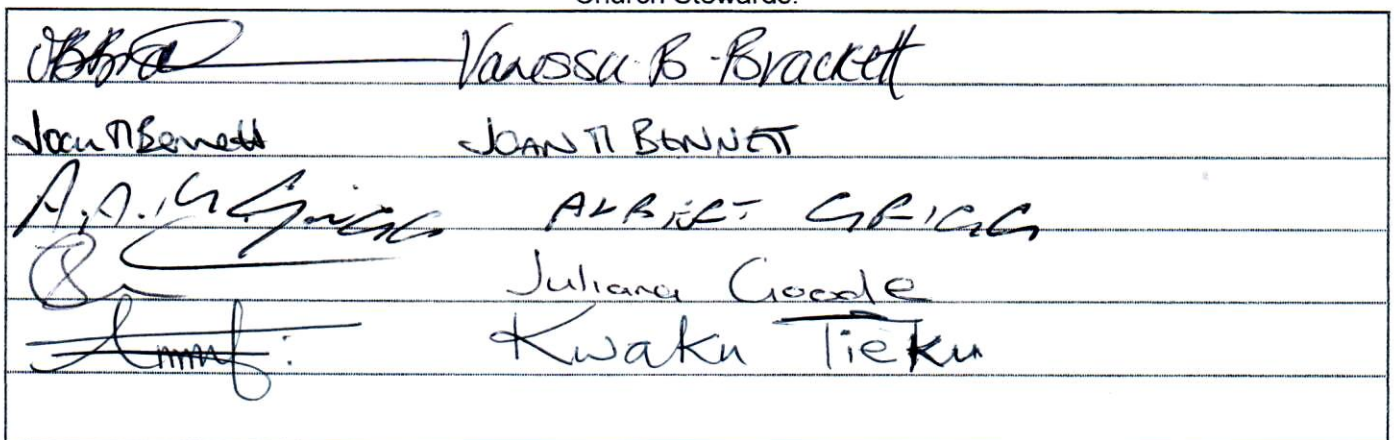 Church Stewards:
Vanessa B-Brackett
Joan M Bennett JOAN M BENNETT
A.A. Grigg ALBERT GRIGG
Juliana Goode
Kwaku Tieku